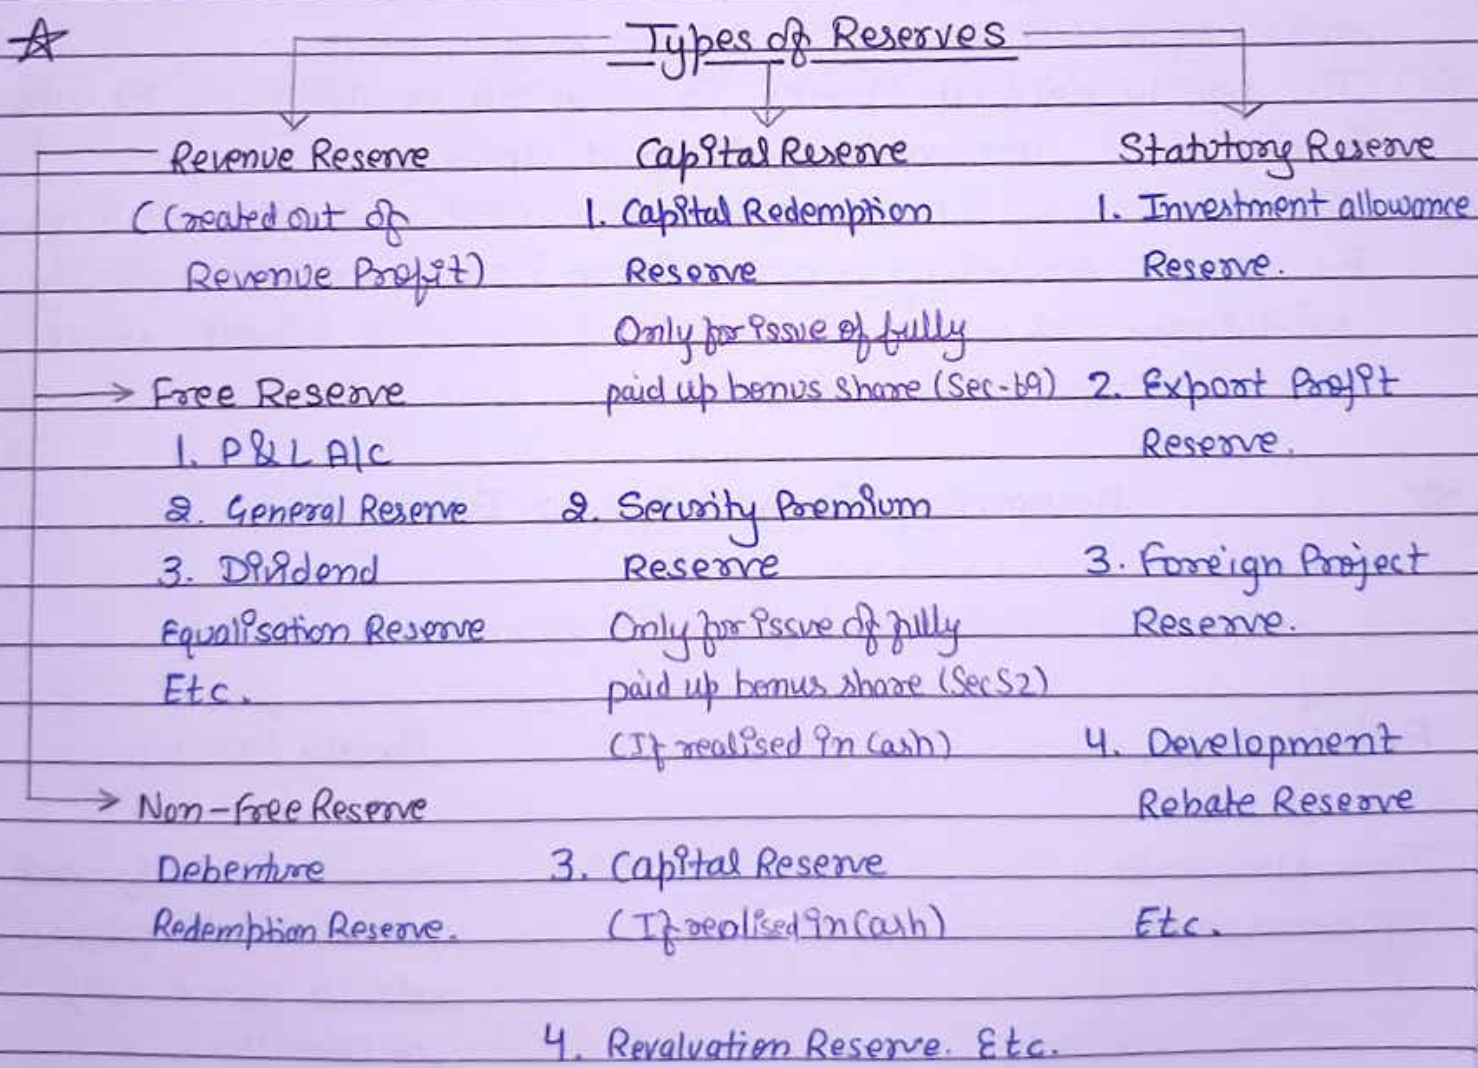 Types of Reserves
Revenue Reserve
(Created out of
Revenue Profit)
Free Reserve
1. P&L A/C
2. General Reserve
3. Dividend
Equalisation Reserve
Etc.
Non-free Reserve
Debenture
Redemption Reserve.
Capital Reserve
1. Capital Redemption
Reserve
Only for issue of fully
paid up bonus share (Sec-69)
2. Security Premium
Reserve
Only for issue of fully
paid up bonus share (Sec 52)
(If realised in cash)
3. Capital Reserve
(If realised in cash)
4. Revaluation Reserve. Etc.
Statutory Reserve
1. Investment allowance
Reserve.
2. Export Profit
Reserve.
3. Foreign Project
Reserve.
4. Development
Rebate Reserve
Etc.